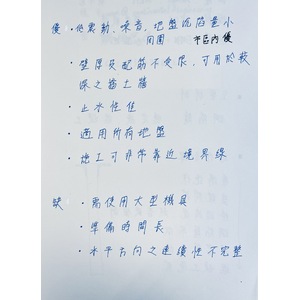 優 · 低震動、噪音、地盤沉陷量小
周圍 市區內優
· 壁厚及配筋不受限,可用於較
深之擋土牆
· 止水性佳
· 適用所有地盤
· 施工可非常靠近境界線
缺 · 需使用大型機具
· 準備時間長
· 水平方向之連續性不完整